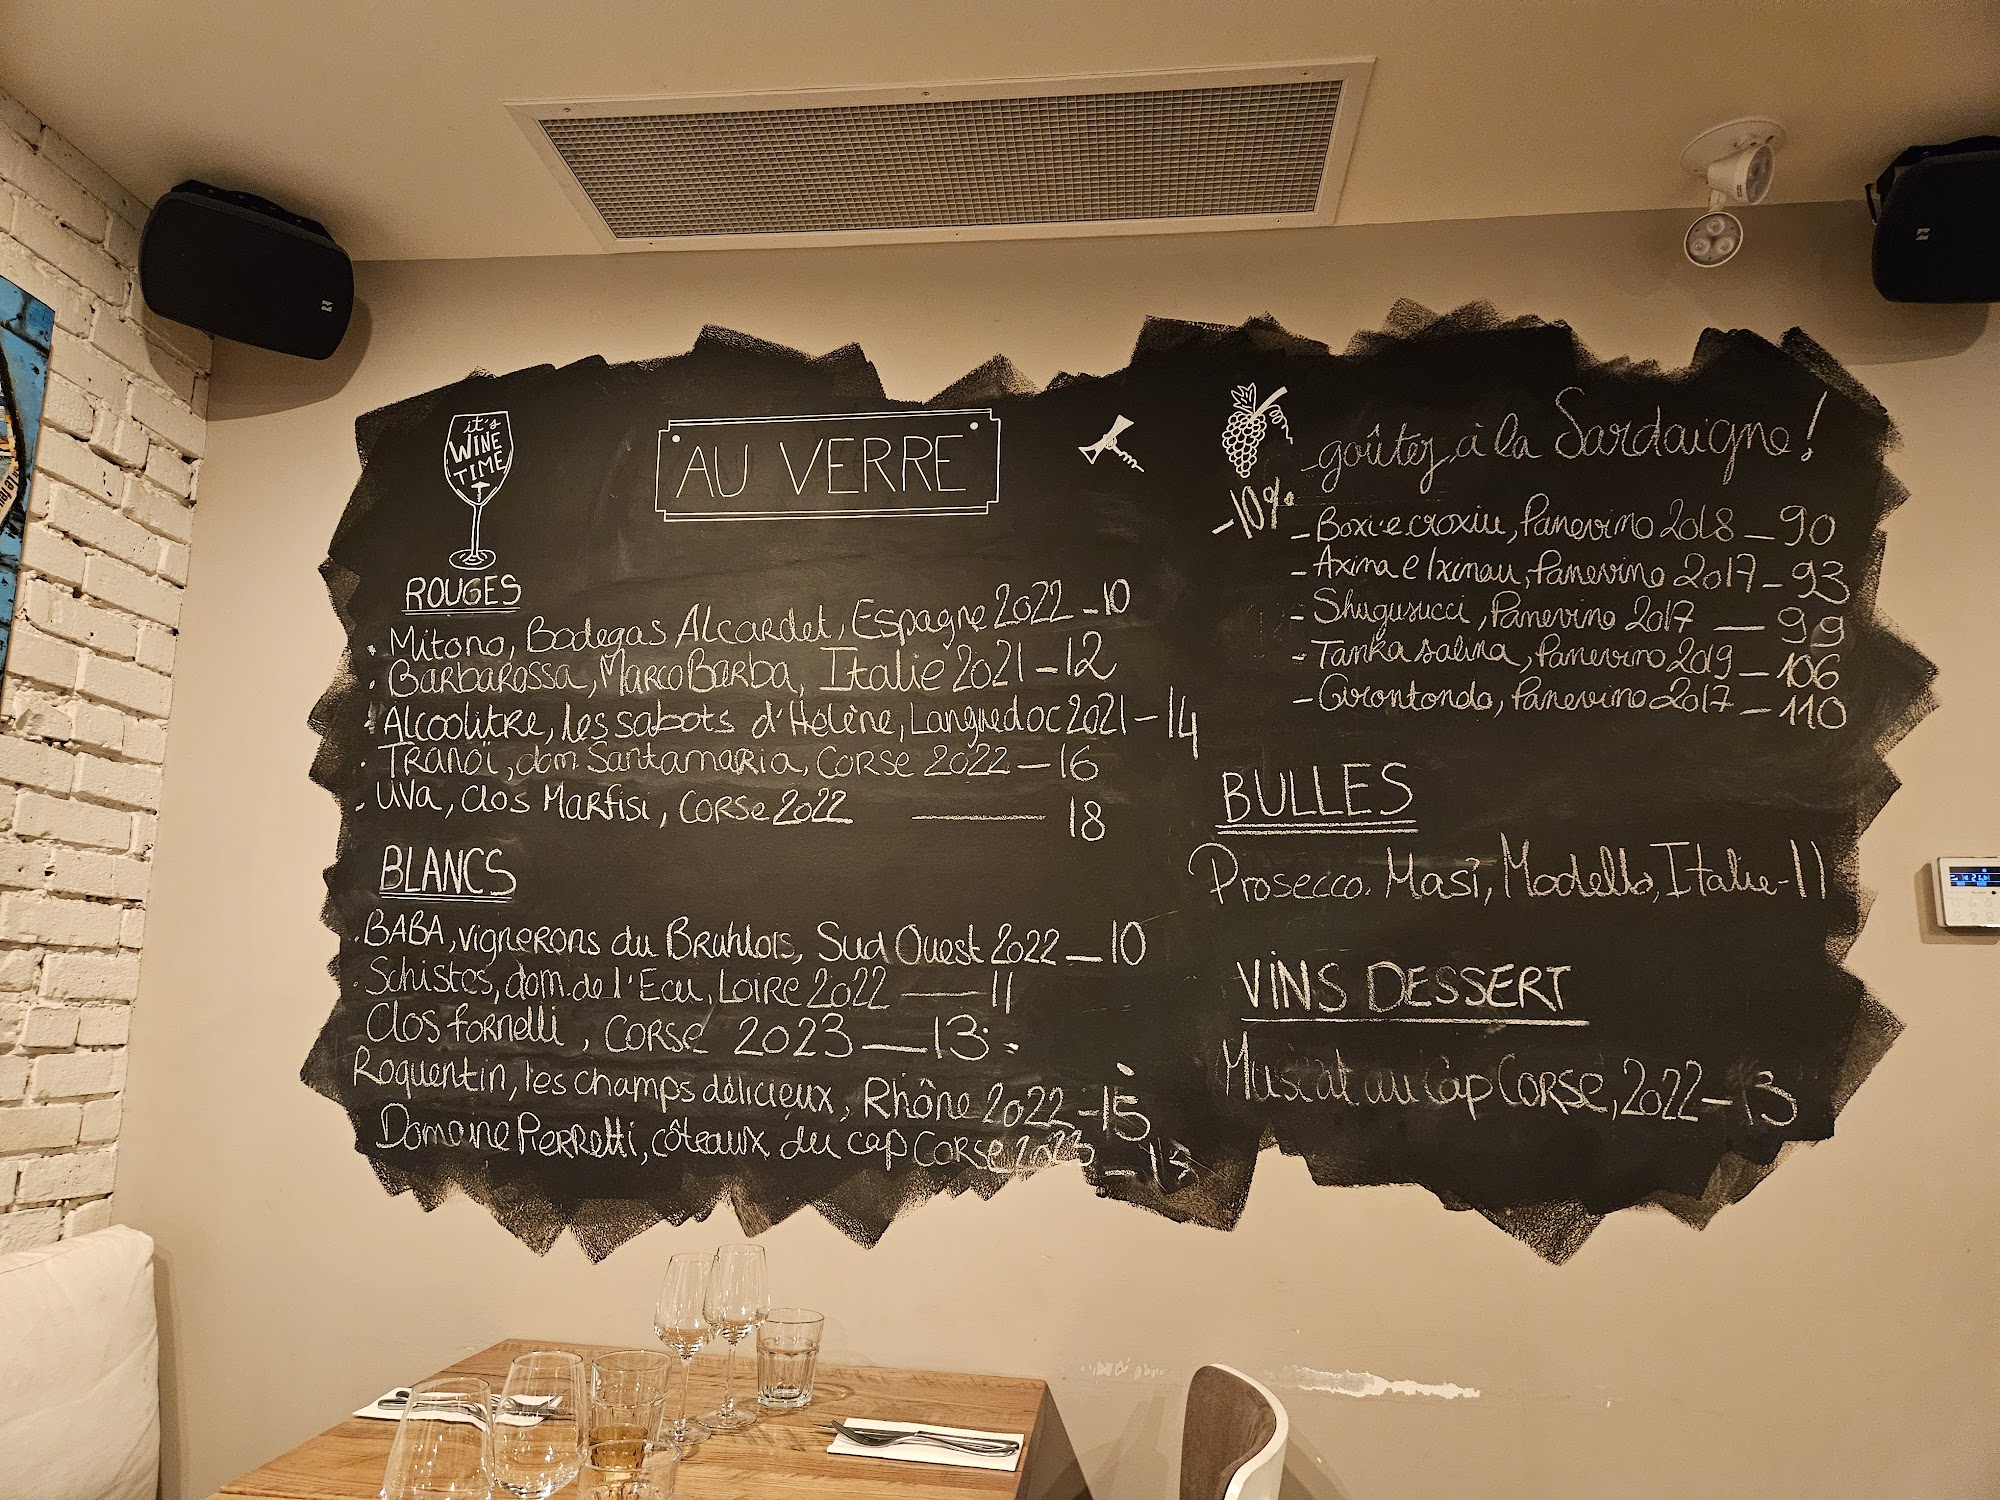 it's
WINE
TIME
AU VERRE
ROUGES
. Mitono, Bodegas Alcardet, Espagne 2022 - 10
. Barbarossa, Marco Barba, Italie 2021 - 12
Alcoolitre, les sabots d'Hélène, Languedoc 2021 - 14
. Tranoï, dom. Santamaria, Corse 2022 — 16
- Uva, clos Marfisi, Corse 2022 — 18
BLANCS
. BABA, vignerons du Bruhlois, Sud Ouest 2022 — 10
. Schistes, dom. de l'Ecu, Loire 2022 — 11
Clos fornelli, Corse 2023 — 13
Roquentin, les champs délicieux, Rhône 2022 - 15
Domaine Pierretti, côteaux du cap Corse 2023 —
goûtez à la Sardaigne!
-10%
- Boxi e croxiu, Panevino 2018 — 90
- Axina e Ixinau, Panevino 2017 - 93
- Shugusucci, Panevino 2017 — 99
- Tanka salina, Panevino 2019 - 106
- Girontondo, Panevino 2017 - 110
BULLES
Prosecco. Masi, Modello, Italie - 11
VINS DESSERT
Muscat au Cap Corse, 2022 - 13